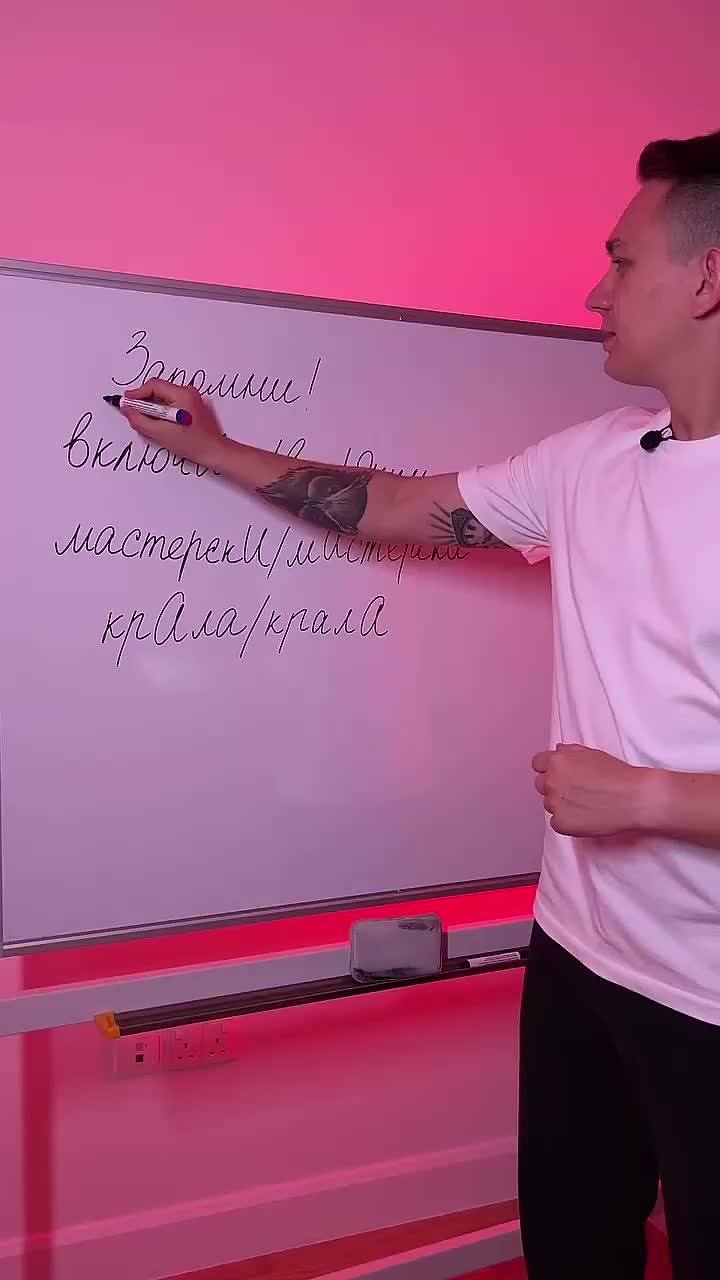 Запомни!
мастерскИ/мАстерски
крАла/кралА